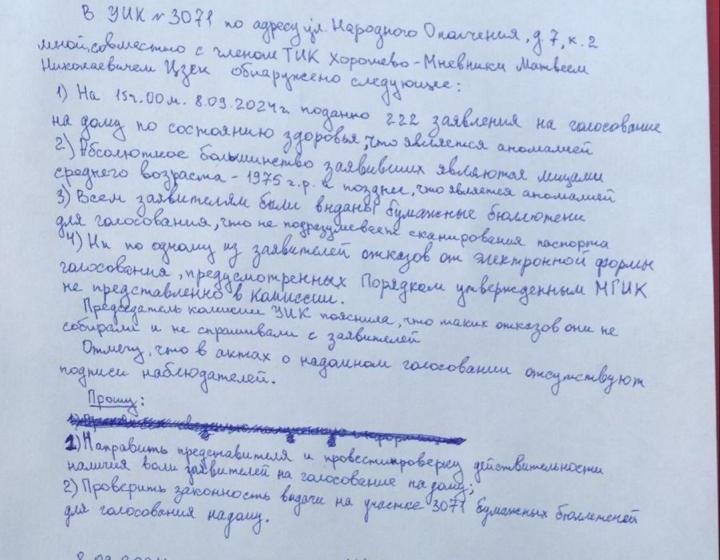 В УИК №3071 по адресу ул. Народного Ополчения, д 7, к. 2
мной, совместно с членом ТИК Хорошево-Мневники Матвеем
Николаевичем Цзен обнаружено следующее:
1) На 15ч.00м. 8.09.2024г. поданно 222 заявления на голосование
на дому по состоянию здоровья, что является аномалией
2) Абсолютное большинство заявивших являются лицами
среднего возраста - 1975 г.р. и позднее, что является аномалией
3) Всем заявителям были выданы бумажные бюллетени
для голосования, что не подразумевает сканирования паспорта
4) Ни по одному из заявителей отказов от электронной формы
голосования, предусмотренных Порядком утвержденным МГИК
не представленно в Комиссии.
Председатель комиссии УИК пояснила, что таких отказов они не
собирали и не спрашивали с заявителей
Отмечу, что в актах о надомном голосовании отсутствуют
подписи наблюдателей.
Прошу:
1) Направить представителя и провести проверку действительности
наличия воли заявителей на голосование на дому;
2) Проверить законность выдачи на участке 3071 бумажных бюллетеней
для голосования на дому.